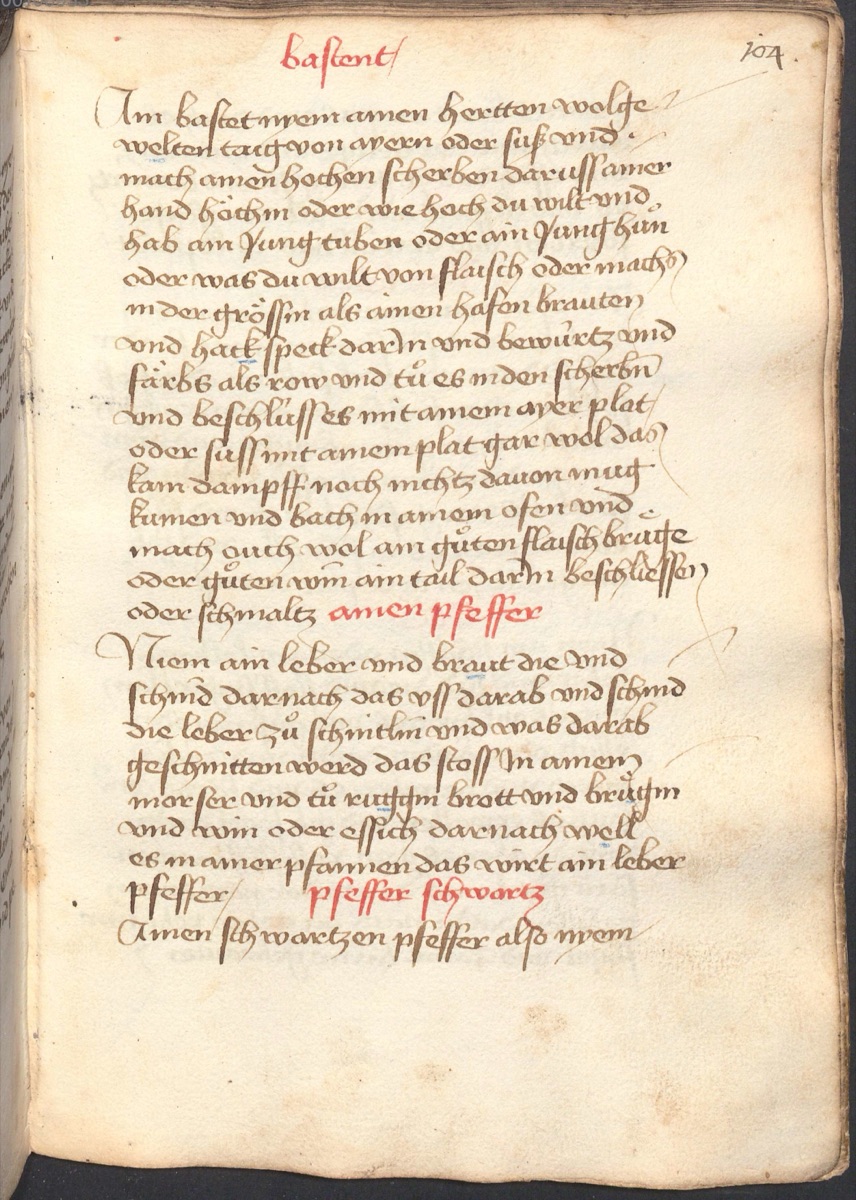 bastent
104
Ain bastet nyem ainen hertten wolge
welten taig von ayern oder suß vnd
mach ainen hochen scherben daruss ainer
hand höchin oder wie hoch du wilt vnd
hab ain Jung tuben oder ain Jung hůn
oder was du wilt von flaisch oder machs
in der grössin als ainen hasen brauten
vnd hack speck darIn vnd bewürtz vnd
färbs als row vnd tů es in den scherbn̄
vnd beschlüss es mit ainem ayer plat
oder suss mit ainem plat gar wol das
kain dampff noch nichtz dauon mug
kumen vnd bach in ainem ofen vnd
mach ouch wol ain gůten flaisch brüge
oder gůten win ain tail darIn beschliessen
oder schmaltz ainen pfeffer
Niem ain leber vnd braut die vnd
schnid darnach das vss darab vnd schnid
die leber zů schnitlin vnd was darab
geschnitten werd das stoss In ainem
morser vnd tů ruggin brott vnd brůgin
vnd win oder essich darnach well
es in ainer pfannen das wirt ain leber
pfeffer pfeffer schwartz
Ainen schwartzen pfeffer also nyem